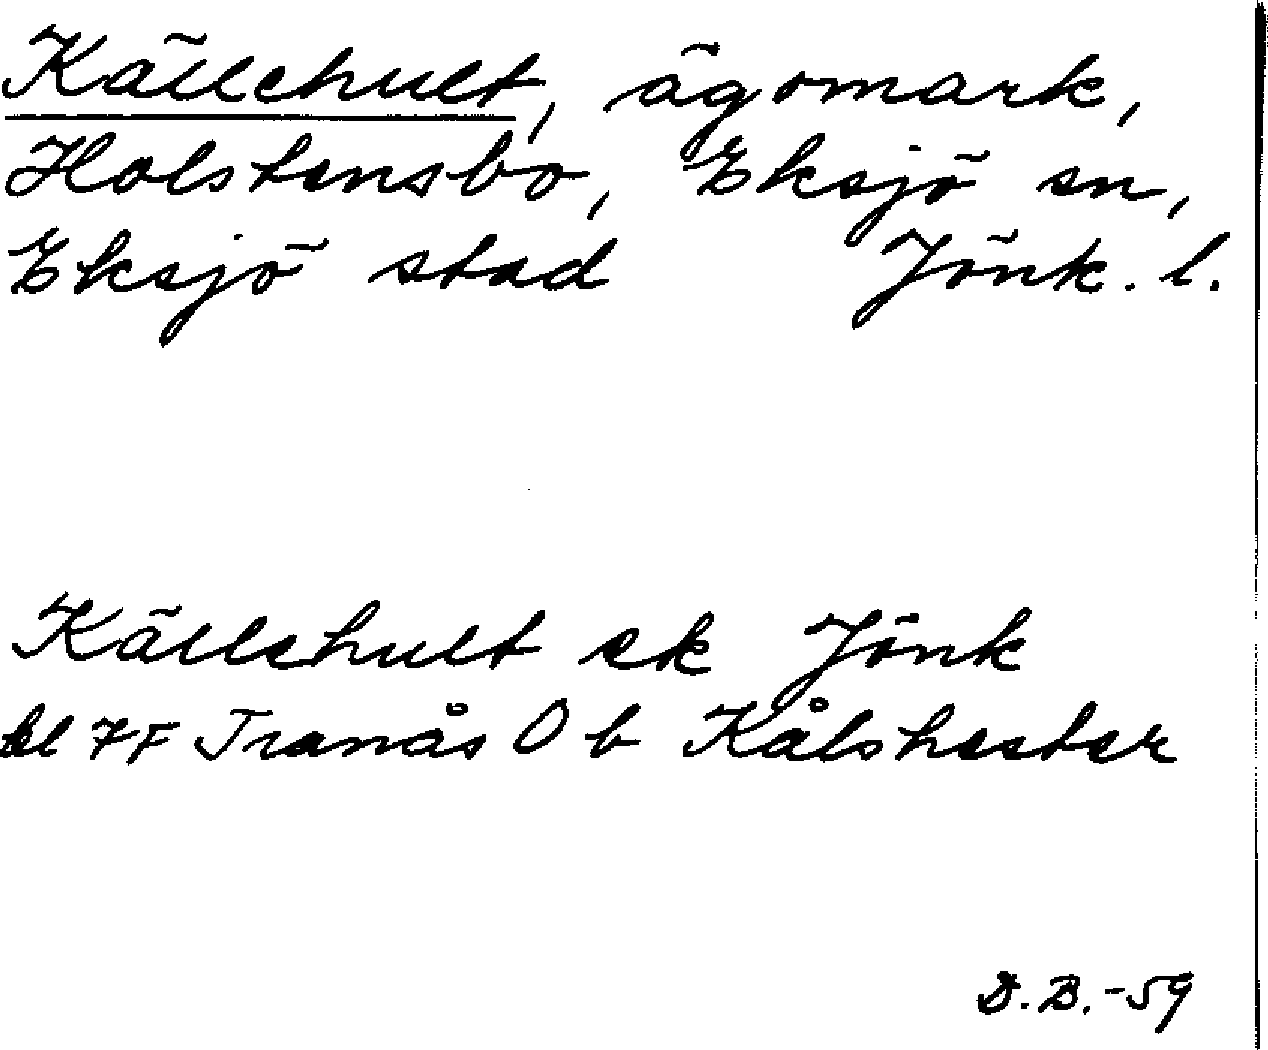 Källehult, ägomark,
Holstensbo, Eksjö sn,
Eksjö stad Jönk. l.
Källehult ek Jönk
bl 7F Tranås O b Kålshester
D.B.-59